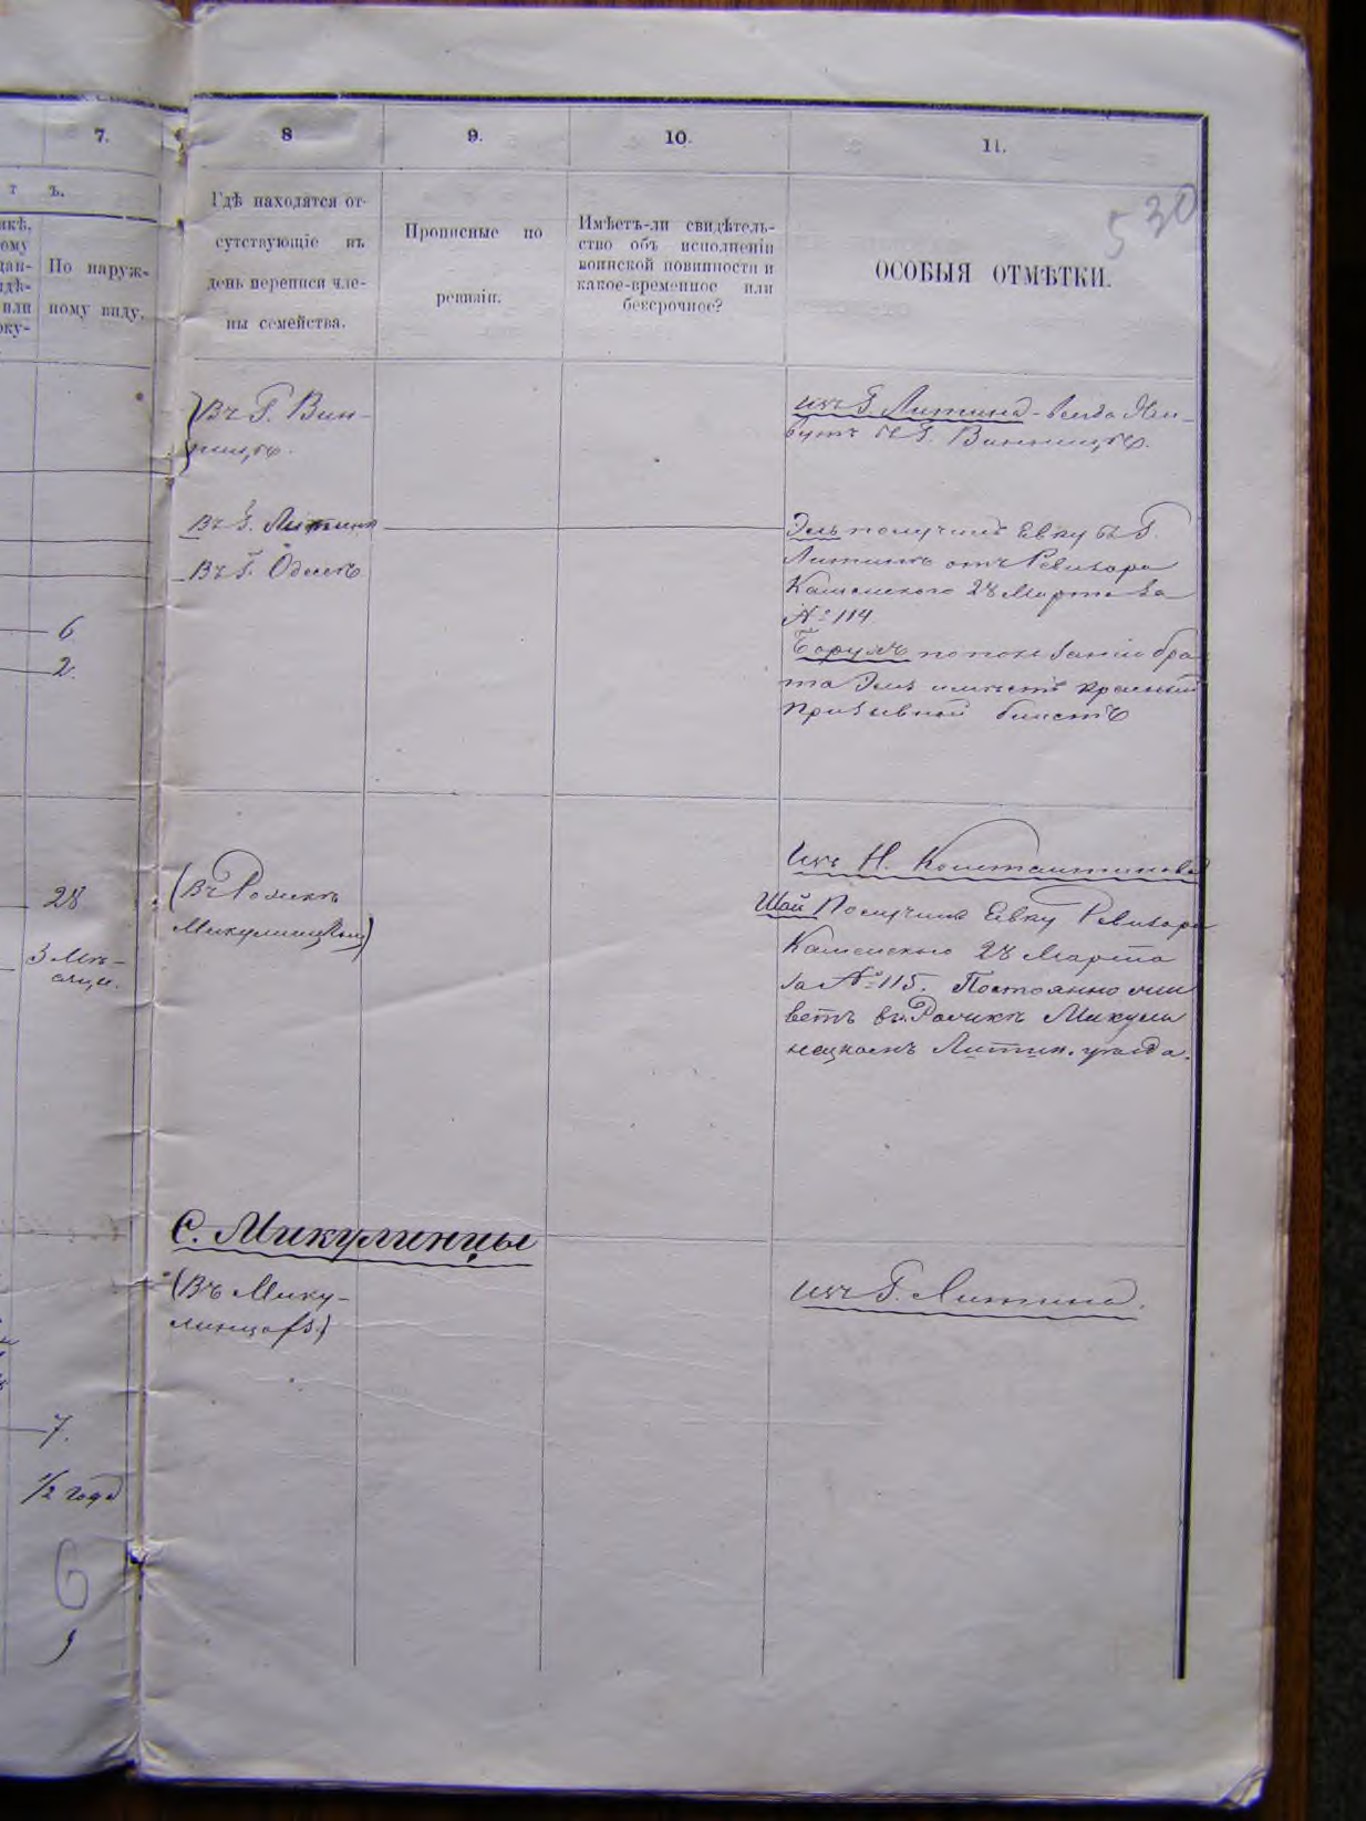 7.
8
9.
10.
11.
530
т ъ.
По наруж-
ному виду.
Гдѣ находятся от-
сутствующіе въ
день переписи чле-
ны семейства.
Прописные по
ревизіи.
Имѣетъ-ли свидѣтель-
ство объ исполненіи
воинской повинности и
какое-временное или
безсрочное?
ОСОБЫЯ ОТМѢТКИ.
Въ Г. Вин-
ницѣ.
изъ Г. Литина - всегда жи-
вутъ въ Г. Винницѣ.
Въ Г. Литинѣ
Въ Г. Одессѣ
6
2.
Эль получилъ Евку въ Г.
Литинѣ отъ Ревизора
Каменского 28 Марта за
№ 114
Борухъ по показанію бра
та Эль имѣетъ красный
призывной билетъ
28
3 мѣ-
сяца.
(Въ Ромкѣ
Микулинецкомъ)
изъ Н. Константинова
Шай Получилъ Евку Ревизора
Каменского 28 Марта
за № 115. Постоянно жи
ветъ въ Микули
нецкомъ Литин. уѣзда.
С. Микулинцы
(Въ Мику-
линцахъ)
изъ Г. Литина.
7.
1/2 года
6